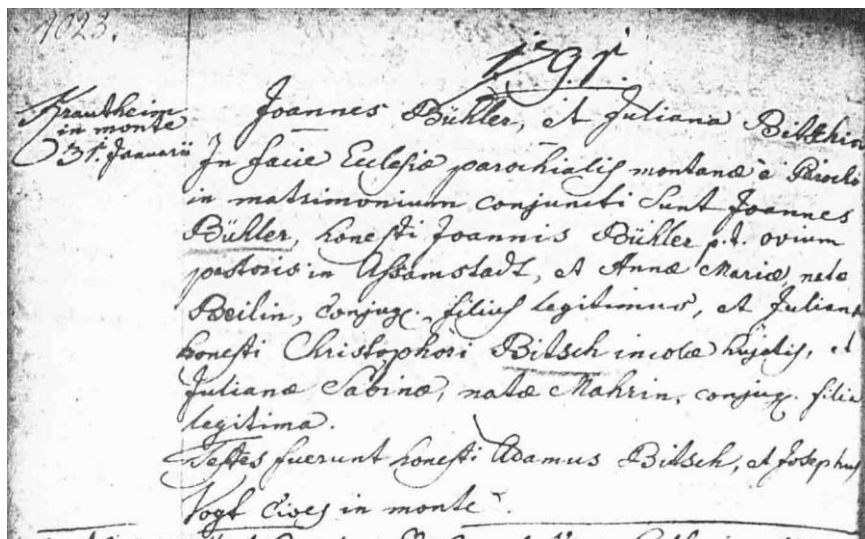 1023.
1791.
Krautheim
in monte
31. Januarii
Joannes Bühler, et Juliana Bitschin
In facie Ecclesiæ parochialis montanæ à Parocho
in matrimonium conjuncti sunt Joannes
Bühler, honesti Joannis Bühler p.t. ovium
pastoris in Assamstadt, et Annæ Mariæ, natæ
Beilin, conjug. filius legitimus, et Juliana
honesti Christophori Bitsch incolæ hujatis, et
Julianæ Sabinæ, natæ Mahrin, conjug. filia
legitima.
Testes fuerunt honesti Adamus Bitsch, et Josephus
Vogt Cives in monte.